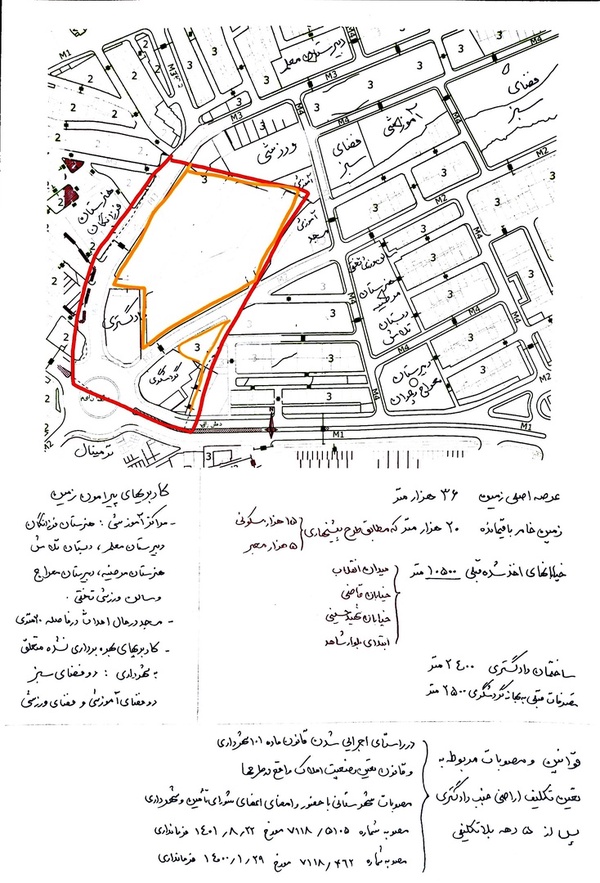 M1
2
M3
دبیرستان معلم
3
M4
فضای سبز
ورزشی
فضای سبز
آموزشی
M2
هنرستان فرزانگان
آموزشی
مسجد
3
دادگستری
گردشگری
هنرستان مرضیه
دبستان تلاش
دبیرستان معراج پسران
ترمینال
M1
M2
عرصه اصلی زمین ۳۶ هزار متر
زمین خام باقیمانده ۲۰ هزار متر که مطابق طرح پیشنهادی
۱۵ هزار مسکونی
۵ هزار معبر
خیابانهای اخذ شده قبلی ۱۰۵۰۰ متر
میدان انقلاب
خیابان قاضی
خیابان شهید حسینی
ابتدای بلوار شاهد
ساختمان دادگستری ۲۴۰۰ متر
تصرفات قبلی به بهانه گردشگری ۲۵۰۰ متر
کاربریهای پیرامون زمین
- مراکز آموزشی : هنرستان فرزانگان
دبیرستان معلم ، دبستان تلاش
هنرستان مرضیه ، دبیرستان معراج
و سالن ورزشی تختی .
- مسجد در حال احداث در فاصله ۲۰ متری
- کاربریهای بهره برداری نشده متعلق
به شهرداری : دو فضای سبز
دو فضای آموزشی و فضای ورزشی
قوانین و مصوبات مربوط به
تعیین تکلیف اراضی جنب دادگستری
پس از ۵ دهه بلاتکلیفی
در راستای اجرایی شدن قانون ماده ۱۰۱ شهرداری
و قانون تعیین وضعیت املاک واقع در طرحها
مصوبات شهرستانی با حضور و امضای اعضای شورای تأمین و شهرداری
مصوبه شماره ۷۱۱۸/۵۱۰۵ مورخ ۱۴۰۱/۸/۲۲ فرمانداری
مصوبه شماره ۷۱۱۸/۴۶۲ مورخ ۱۴۰۰/۱/۲۹ فرمانداری